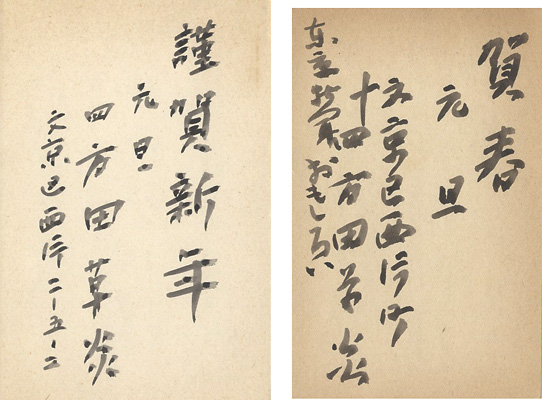 謹賀新年
元旦
四方田草炎
文京区西片二-五-二
賀春
元旦
文京区西片町
十 四方田草炎
東京 おもしろい